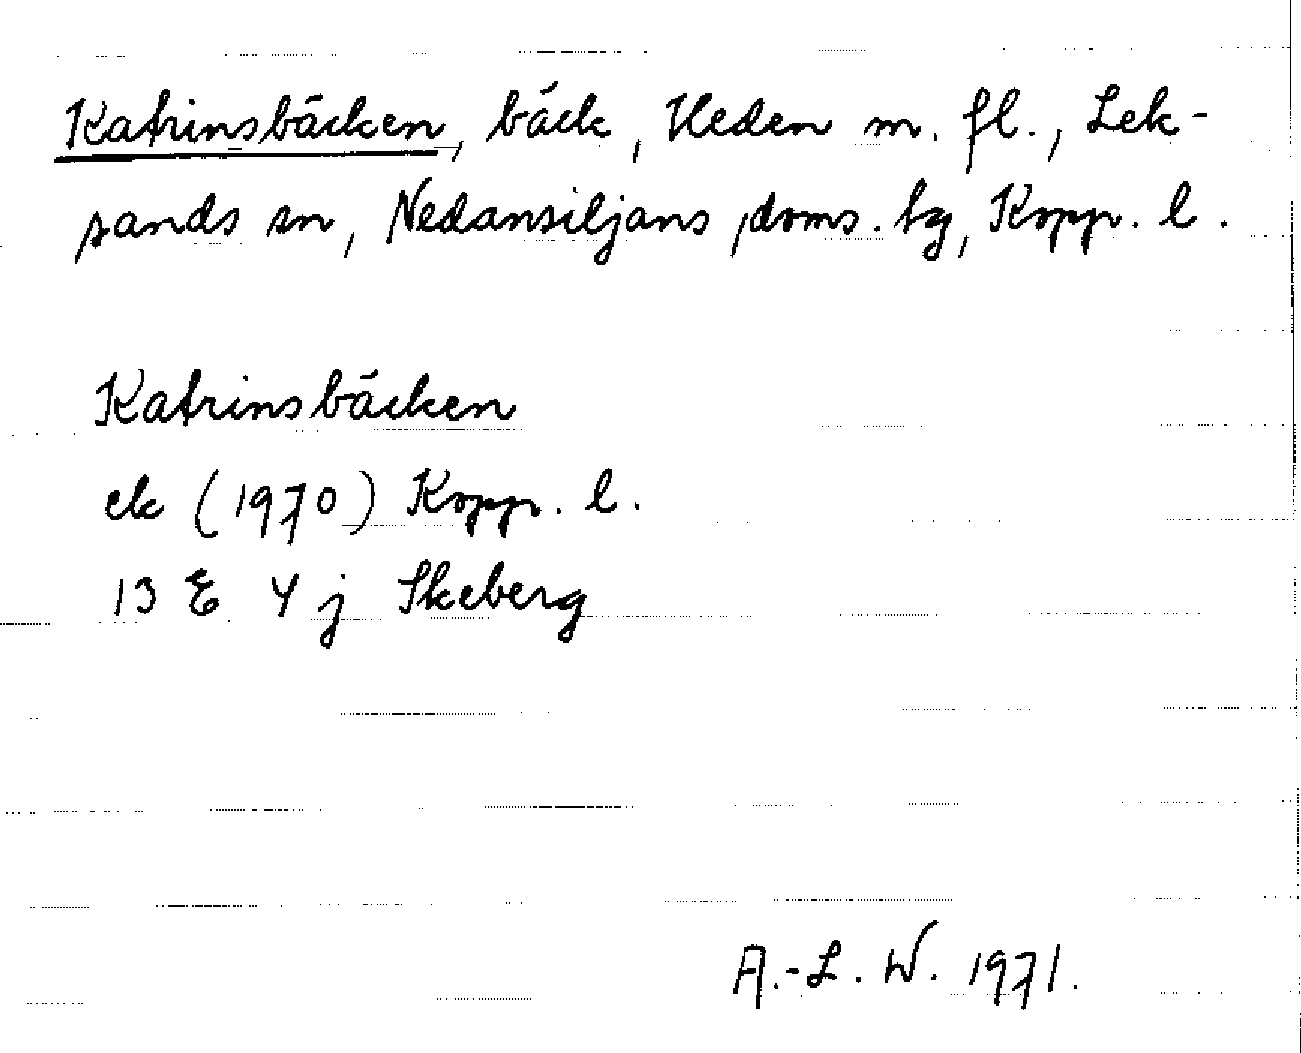 Katrinsbäcken, bäck, Heden m. fl., Lek-
sands sn, Nedansiljans doms. tg, Kopp. l.
Katrinsbäcken
ek (1970) Kopp. l.
13 E 4 j Skeberg
A.-L. W. 1971.